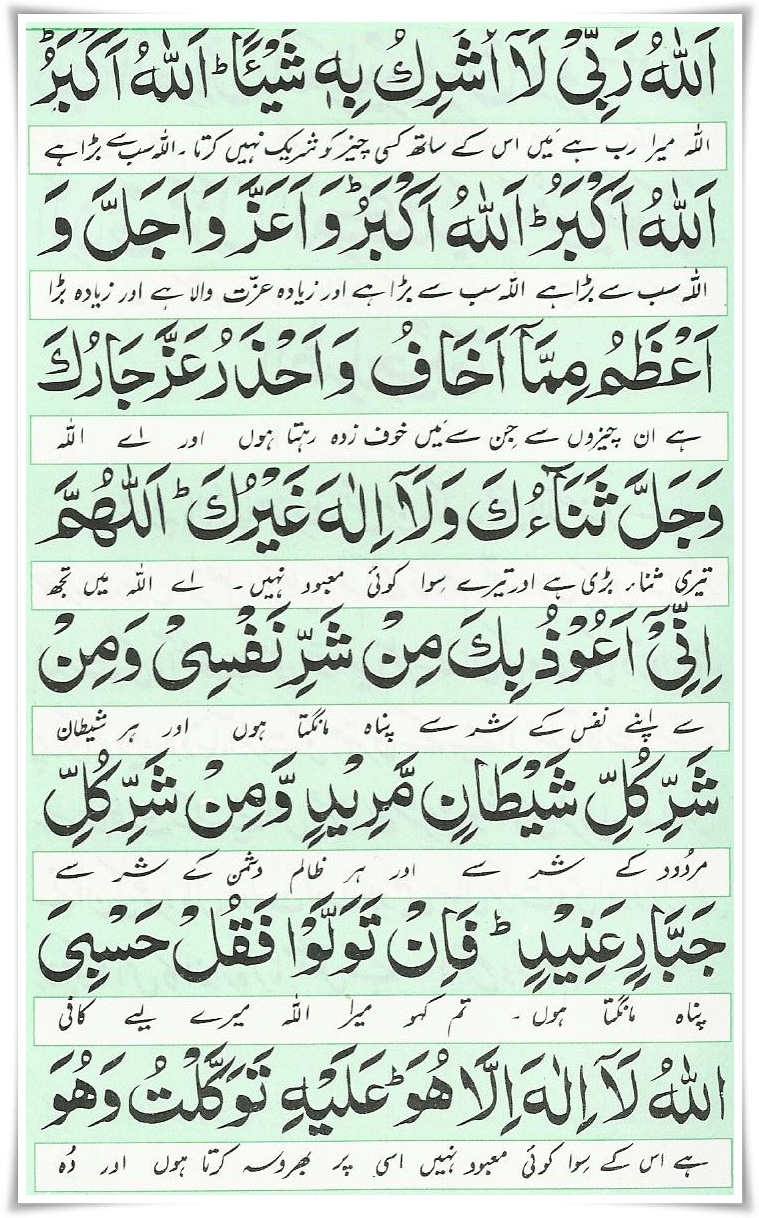 اَللّٰهُ رَبِّیْ لَآ اُشْرِكُ بِهٖ شَیْئًا ؕ اَللّٰهُ اَكْبَرُ ؕ
اللہ میرا رب ہے میں اس کے ساتھ کسی چیز کو شریک نہیں کرتا ۔ اللہ سب سے بڑا ہے
اَللّٰهُ اَكْبَرُ ؕ اَللّٰهُ اَكْبَرُ ؕ وَاَعَزُّ وَاَجَلَّ وَ
اللہ سب سے بڑا ہے اللہ سب سے بڑا ہے اور زیادہ عزّت والا ہے اور زیادہ بڑا
اَعْظَمُ مِمَّآ اَخَافُ وَاَحْذَرُ عَزَّ جَارُكَ
ہے ان چیزوں سے جن سے میں خوف زدہ رہتا ہوں اور اے اللہ
وَجَلَّ ثَنَآءُكَ وَلَآ اِلٰهَ غَیْرُكَ ؕ اَللّٰهُمَّ
تیری ثناء بڑی ہے اور تیرے سِوا کوئی معبود نہیں ۔ اے اللہ میں تجھ
اِنِّیْٓ اَعُوْذُ بِكَ مِنْ شَرِّ نَفْسِیْ وَمِنْ
سے اپنے نفس کے شر سے پناہ مانگتا ہوں اور ہر شیطان
شَرِّ كُلِّ شَیْطَانٍ مَّرِیْدٍ وَّمِنْ شَرِّ كُلِّ
مردُود کے شر سے اور ہر ظالم دشمن کے شر سے
جَبَّارٍ عَنِیْدٍ ؕ فَاِنْ تَوَلَّوْا فَقُلْ حَسْبِیَ
پناہ مانگتا ہوں ۔ تم کہو میرا اللہ میرے لیے کافی
اللّٰهُ لَآ اِلٰهَ اِلَّا هُوَ ؕ عَلَیْهِ تَوَكَّلْتُ وَهُوَ
ہے اس کے سِوا کوئی معبود نہیں اسی پر بھروسہ کرتا ہوں اور وُہ